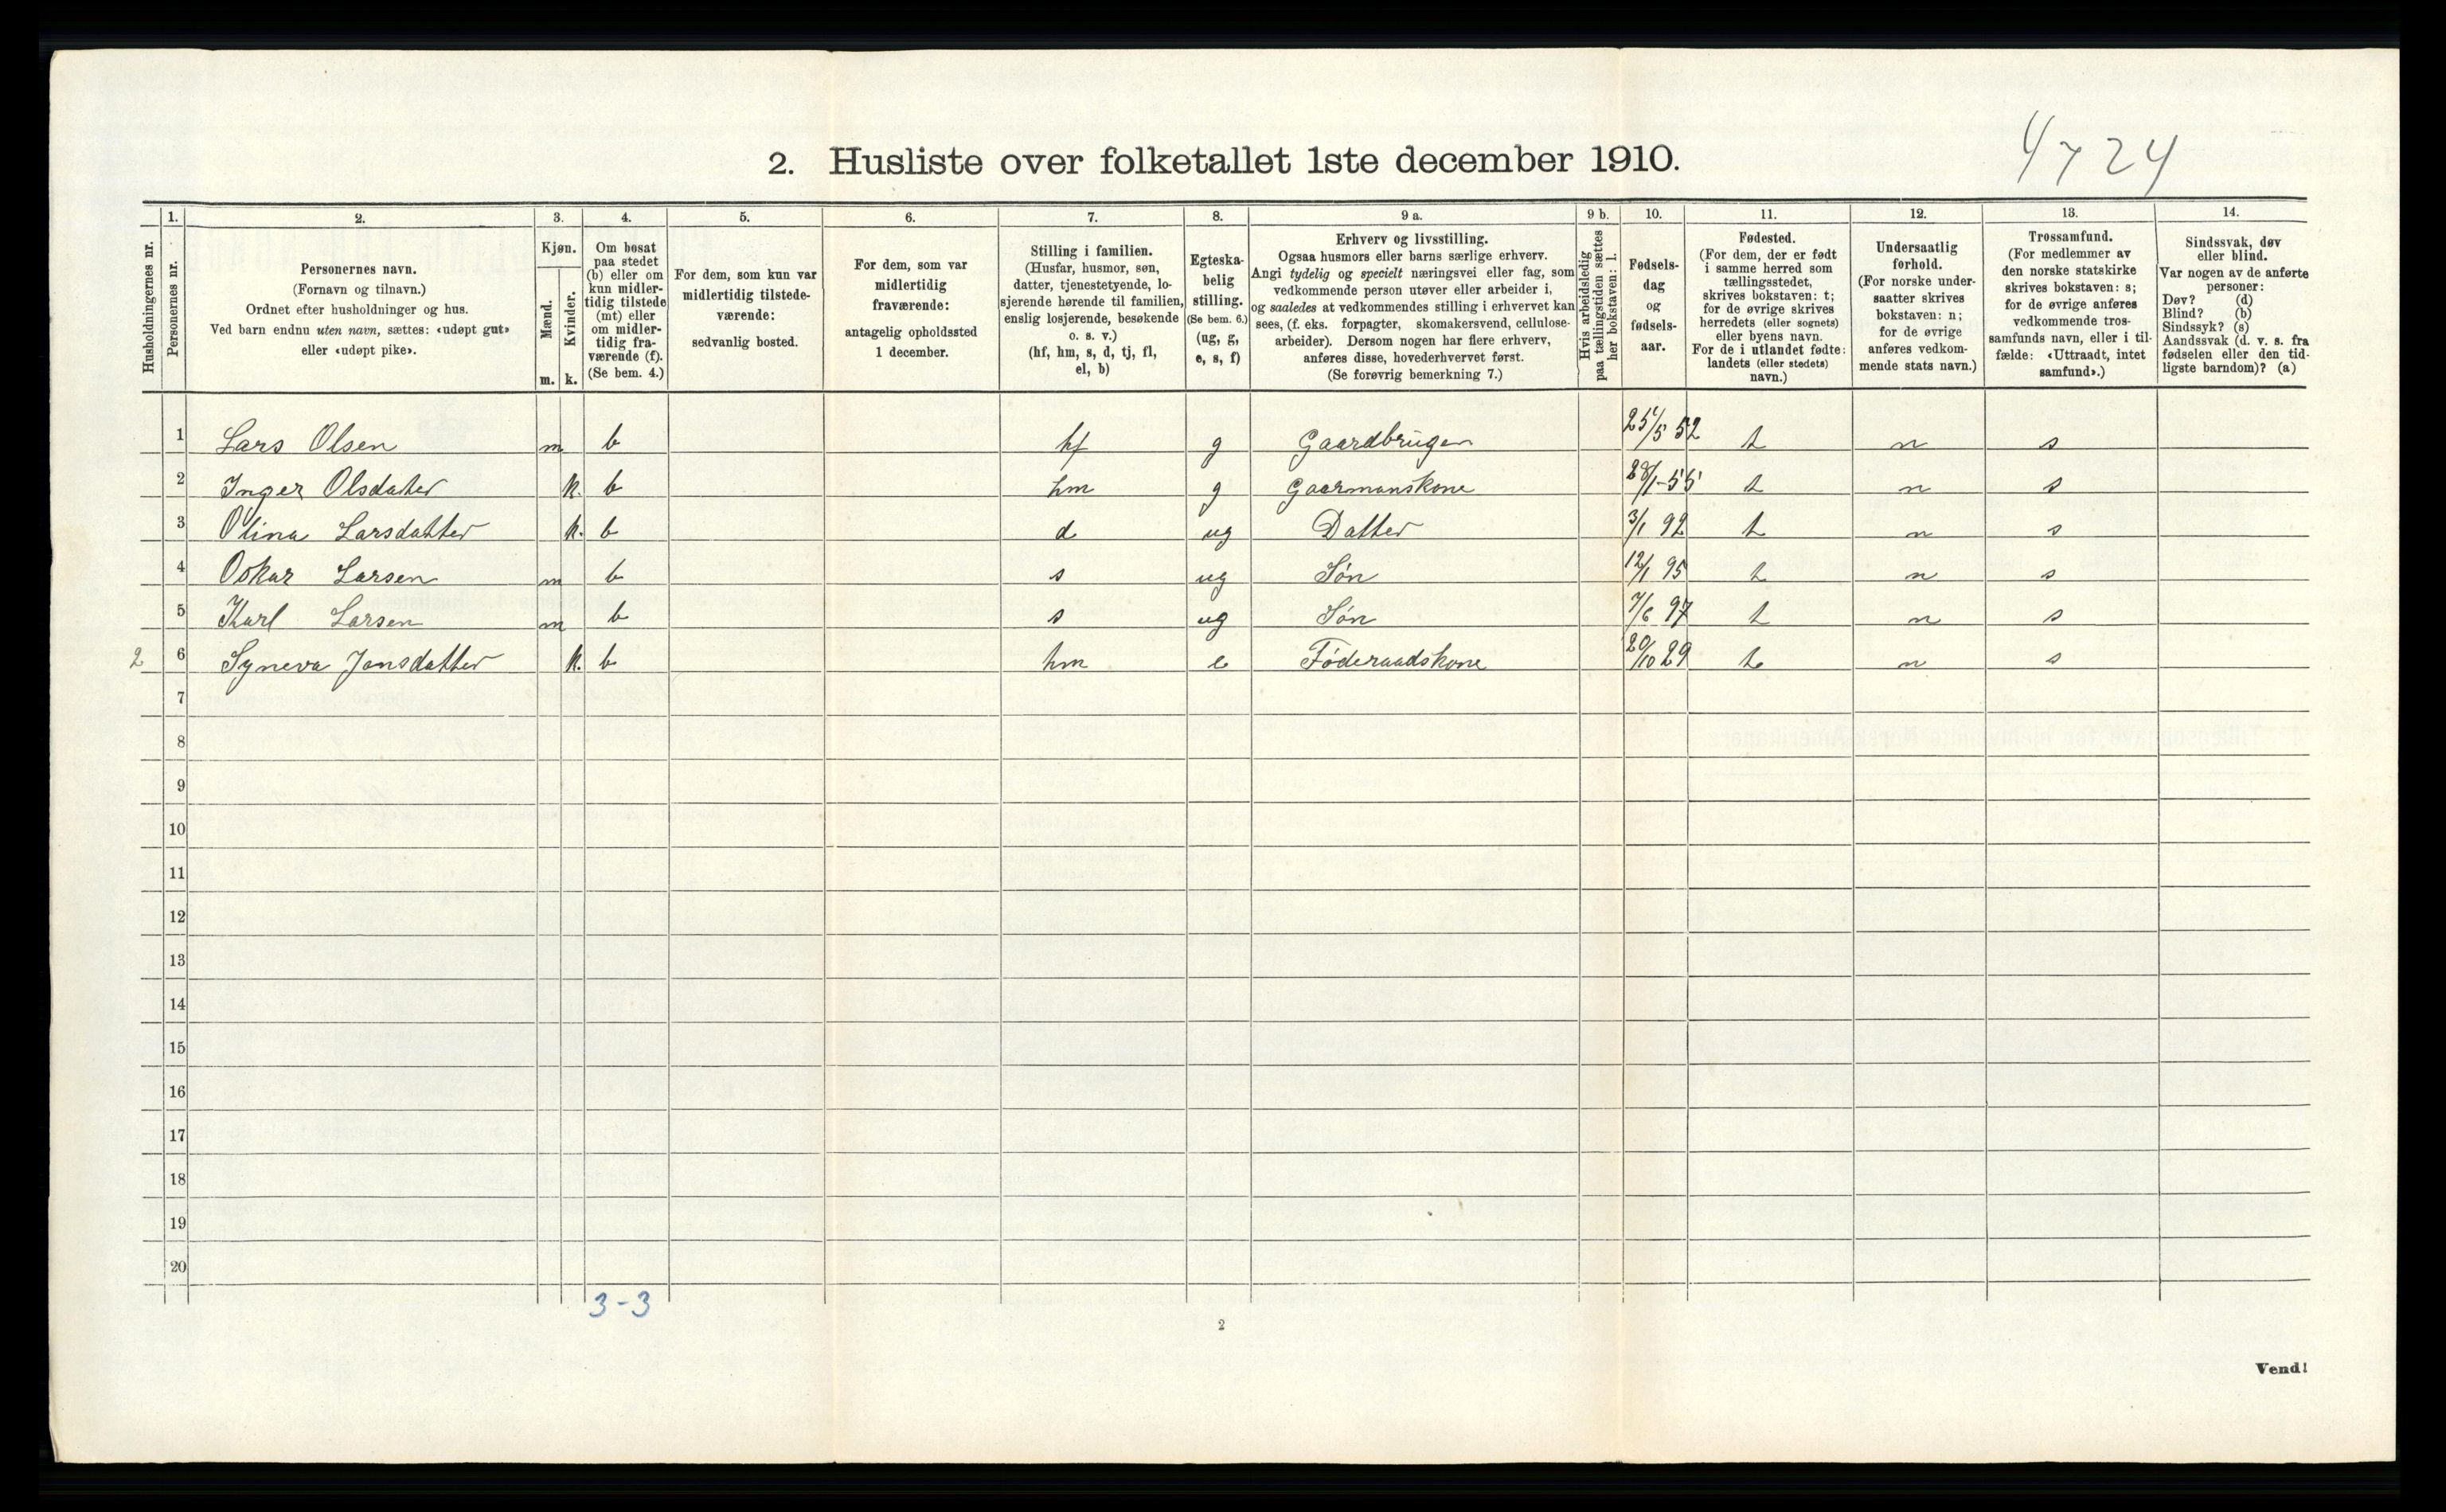 4724
2. Husliste over folketallet 1ste december 1910.
Husholdningernes nr.
1. Personernes nr.
2. Personernes navn.
(Fornavn og tilnavn.)
Ordnet efter husholdninger og hus.
Ved barn endnu uten navn, sættes: «udøpt gut»
eller «udøpt pike».
3. Kjøn.
Mænd. m.
Kvinder. k.
4. Om bosat
paa stedet
(b) eller om
kun midler-
tidig tilstede
(mt) eller
om midler-
tidig fra-
værende (f).
(Se bem. 4.)
5. For dem, som kun var
midlertidig tilstede-
værende:
sedvanlig bosted.
6. For dem, som var
midlertidig
fraværende:
antagelig opholdssted
1 december.
7. Stilling i familien.
(Husfar, husmor, søn,
datter, tjenestetyende, lo-
sjerende hørende til familien,
enslig losjerende, besøkende
o. s. v.)
(hf, hm, s, d, tj, fl,
el, b)
8. Egteska-
belig
stilling.
(Se bem. 6.)
(ug, g,
e, s, f)
9 a. Erhverv og livsstilling.
Ogsaa husmors eller barns særlige erhverv.
Angi tydelig og specielt næringsvei eller fag, som
vedkommende person utøver eller arbeider i,
og saaledes at vedkommendes stilling i erhvervet kan
sees, (f. eks. forpagter, skomakersvend, cellulose-
arbeider). Dersom nogen har flere erhverv,
anføres disse, hovederhvervet først.
(Se forøvrig bemerkning 7.)
9 b. Hvis arbeidsledig
paa tællingstiden sættes
her bokstaven: l.
10. Fødsels-
dag
og
fødsels-
aar.
11. Fødested.
(For dem, der er født
i samme herred som
tællingsstedet,
skrives bokstaven: t;
for de øvrige skrives
herredets (eller sognets)
eller byens navn.
For de i utlandet fødte:
landets (eller stedets)
navn.)
12. Undersaatlig
forhold.
(For norske under-
saatter skrives
bokstaven: n;
for de øvrige
anføres vedkom-
mende stats navn.)
13. Trossamfund.
(For medlemmer av
den norske statskirke
skrives bokstaven: s;
for de øvrige anføres
vedkommende tros-
samfunds navn, eller i til-
fælde: «Uttraadt, intet
samfund».)
14. Sindssvak, døv
eller blind.
Var nogen av de anførte
personer:
Døv? (d)
Blind? (b)
Sindssyk? (s)
Aandssvak (d. v. s. fra
fødselen eller den tid-
ligste barndom)? (a)
1 Lars Olsen m b hf g Gaardbruger 25/5 52 t n s
2 Inger Olsdatter k. b hm g Gaarmanskone 28/1-55 t n s
3 Olina Larsdatter k. b d ug Datter 3/1 92 t n s
4 Oskar Larsen m b s ug Søn 12/1 95 t n s
5 Karl Larsen m b s ug Søn 7/6 97 t n s
2 6 Syneva Jonsdatter k. b hm e Føderaadskone 20/10 29 t n s
7
8
9
10
11
12
13
14
15
16
17
18
19
20
3-3
2
Vend!